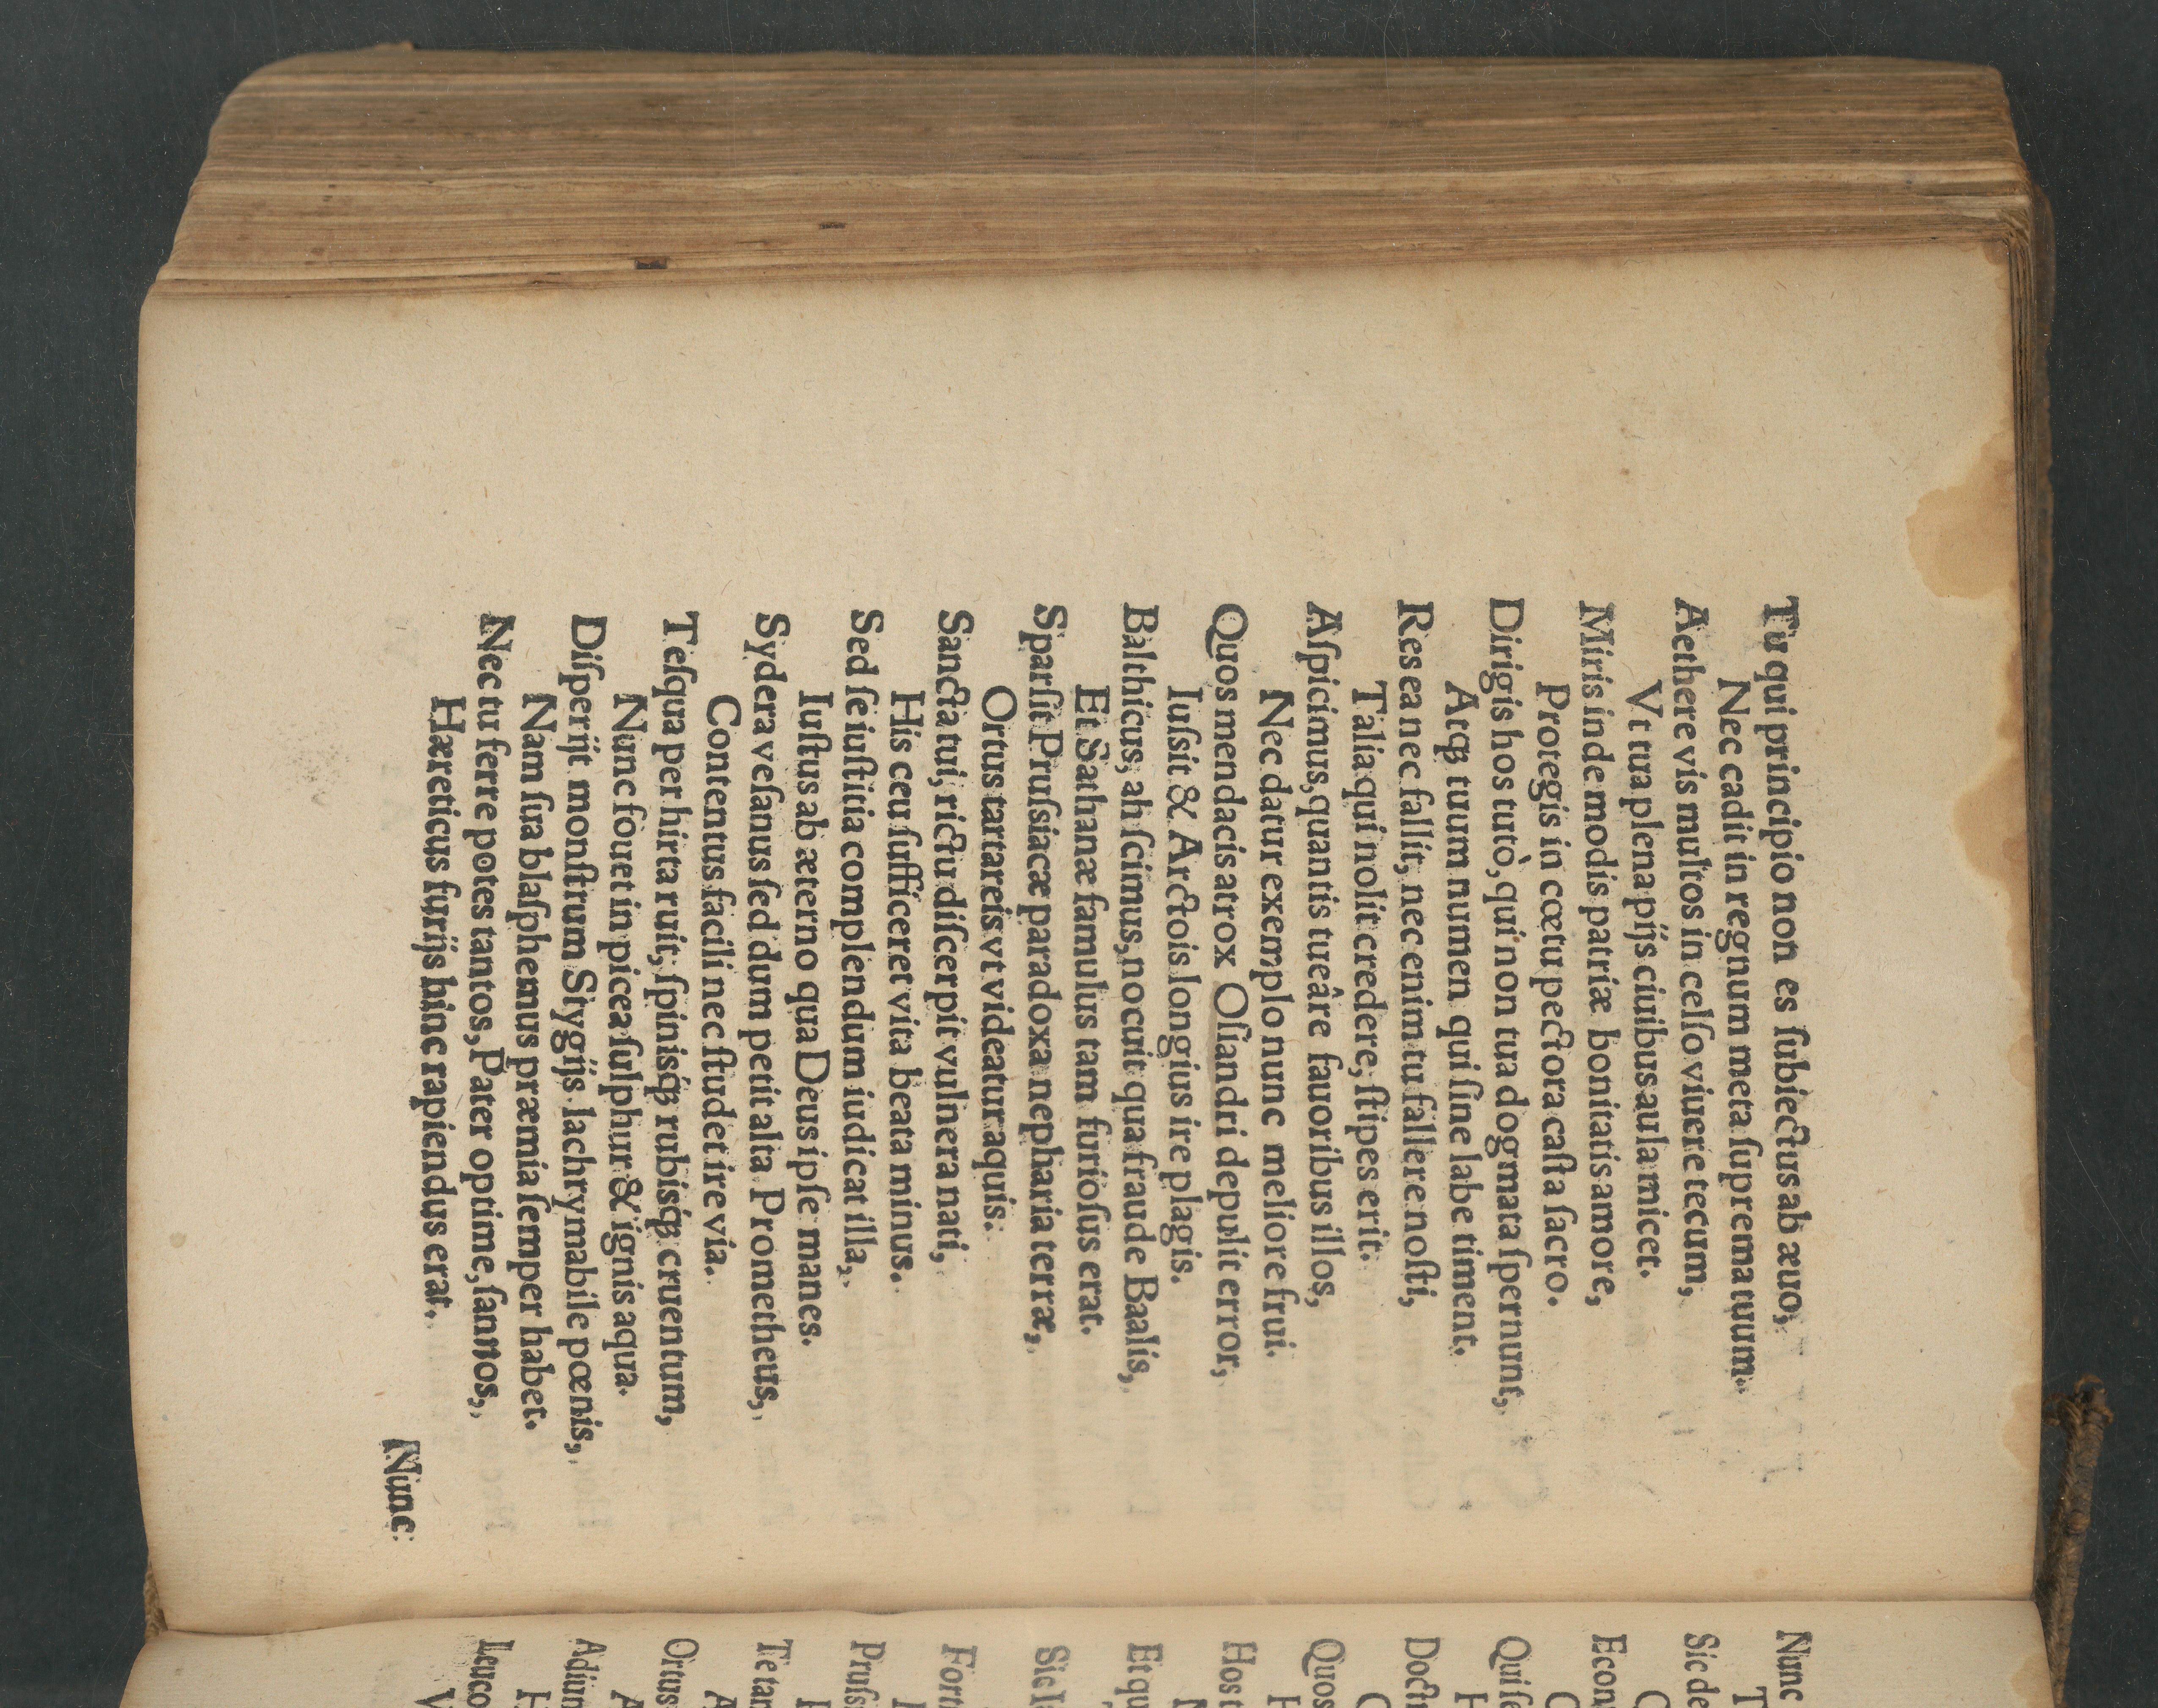 Tu qui principio non es ſubiectus ab æuo,
Nec cadit in regnum meta ſuprema tuum.
Aethere vis multos in celſo viuere tecum,
Vt tua plena pijs ciuibus aula micet.
Miris inde modis patriæ bonitatis amore,
Protegis in cœtu pectora caſta ſacro.
Dirigis hos tutò, qui non tua dogmata ſpernunt,
Atqꝫ tuum numen qui ſine labe timent.
Res ea nec fallit, nec enim tu fallere noſti,
Talia qui nolit credere, ſtipes erit.
Aſpicimus, quantis tueâre fauoribus illos,
Nec datur exemplo nunc meliore frui.
Quos mendacis atrox Oſiandri depulit error,
Iuſsit & Arctois longius ire plagis.
Balthicus, ah ſcimus, nocuit qua fraude Baalis,
Et Sathanæ famulus tam furioſus erat.
Sparſit Pruſsiacæ paradoxa nepharia terræ,
Ortus tartareis vt videatur aquis.
Sancta tui, rictu diſcerpit vulnera nati,
His ceu ſufficeret vita beata minus.
Sed ſe iuſticia complendum iudicat illa,
Iuſtus ab æterno qua Deus ipſe manes.
Sydera veſanus ſed dum petit alta Prometheus,
Contentus facili nec ſtudet ire via.
Teſqua per hirta ruit, ſpinisq́ꝫ rubisq́ꝫ cruentum,
Nunc fouet in picea ſulphur & ignis aqua.
Diſperijt monſtrum Stygijs lachrymabile pœnis,
Nam ſua blaſphemus præmia ſemper habet.
Nec tu ferre potes tantos, Pater optime, ſannos,
Hæreticus furijs hinc rapiendus erat.
Nunc
Nunc
T
Sic de
C
Econ
C
Quiſe
H
Doctr
C
Quos
H
Host
N
Etqu
Sic I
Form
I
Pruſs
Te tan
A
Ortus
A
Adiun
H
Leuco
V